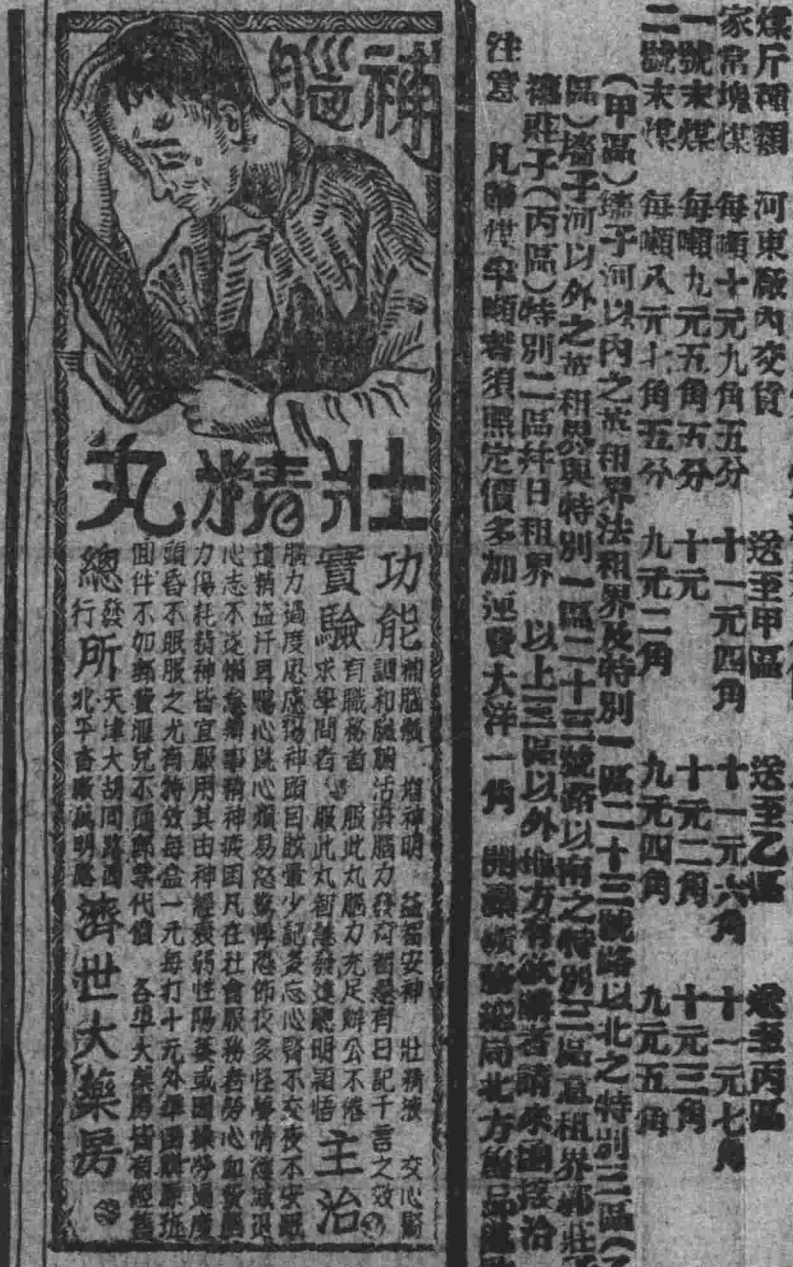 煤斤種類 河東廠內交貨 送至甲區 送至乙區 送至丙區
家常塊煤 每噸十元九角五分 十一元四角 十一元六角 十一元七角
一號末煤 每噸九元五角五分 十元 十元二角 十元三角
二號末煤 每噸八元七角五分 九元二角 九元四角 九元五角
(甲區)墻子河以內之英租界法租界及特別一區二十三號路以北之特別三區(乙
區)墻子河以外之英租界與特別一區二十三號路以南之特別三區意租界郭莊子
莊子(丙區)特別二區幷日租界 以上三區以外地方有欲購者請來函接洽
注意 凡購煤半噸者須照定價多加運費大洋一角 開灤礦務總局北方售品處
補腦
壯精丸
功能 補腦髓 增神明 益智安神 壯精液 交心腎
調和腦胴活潑腦力發育智慧有日記千言之效
實驗 有職務者 服此丸腦力充足辦公不倦
求學問者 服此丸智慧發達聰明穎悟
主治
腦力過度思慮傷神頭目眩暈少記多忘心腎不交夜不安眠
遺精盜汗耳鳴心跳心煩易怒驚悸恐怖夜多怪夢情慾減退
心志不定懶怠辦事精神疲困凡在社會服務者勞心血費腦
力傷耗精神皆宜服用其由神經衰弱性陽萎或因操勞過度
頭昏不眠服之尤有特效每盒一元每打十元外埠函購原班
回件不加郵費滙兌不通郵票代價 各埠大藥房皆有經售
總發行所 天津大胡同路西
北平香廠萬明路
濟世大藥房